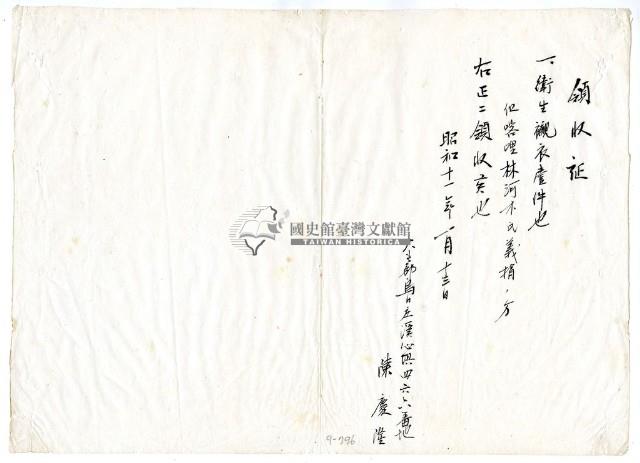 領收証
一、衛生襯衣壹件也
但喀哩林河木氏義捐ノ分
右正ニ領收候也
昭和十一年一月十三日
大屯郡烏日庄溪心埧四六六番地
陳慶隆
國史館臺灣文獻館
TAIWAN HISTORICA
9-796